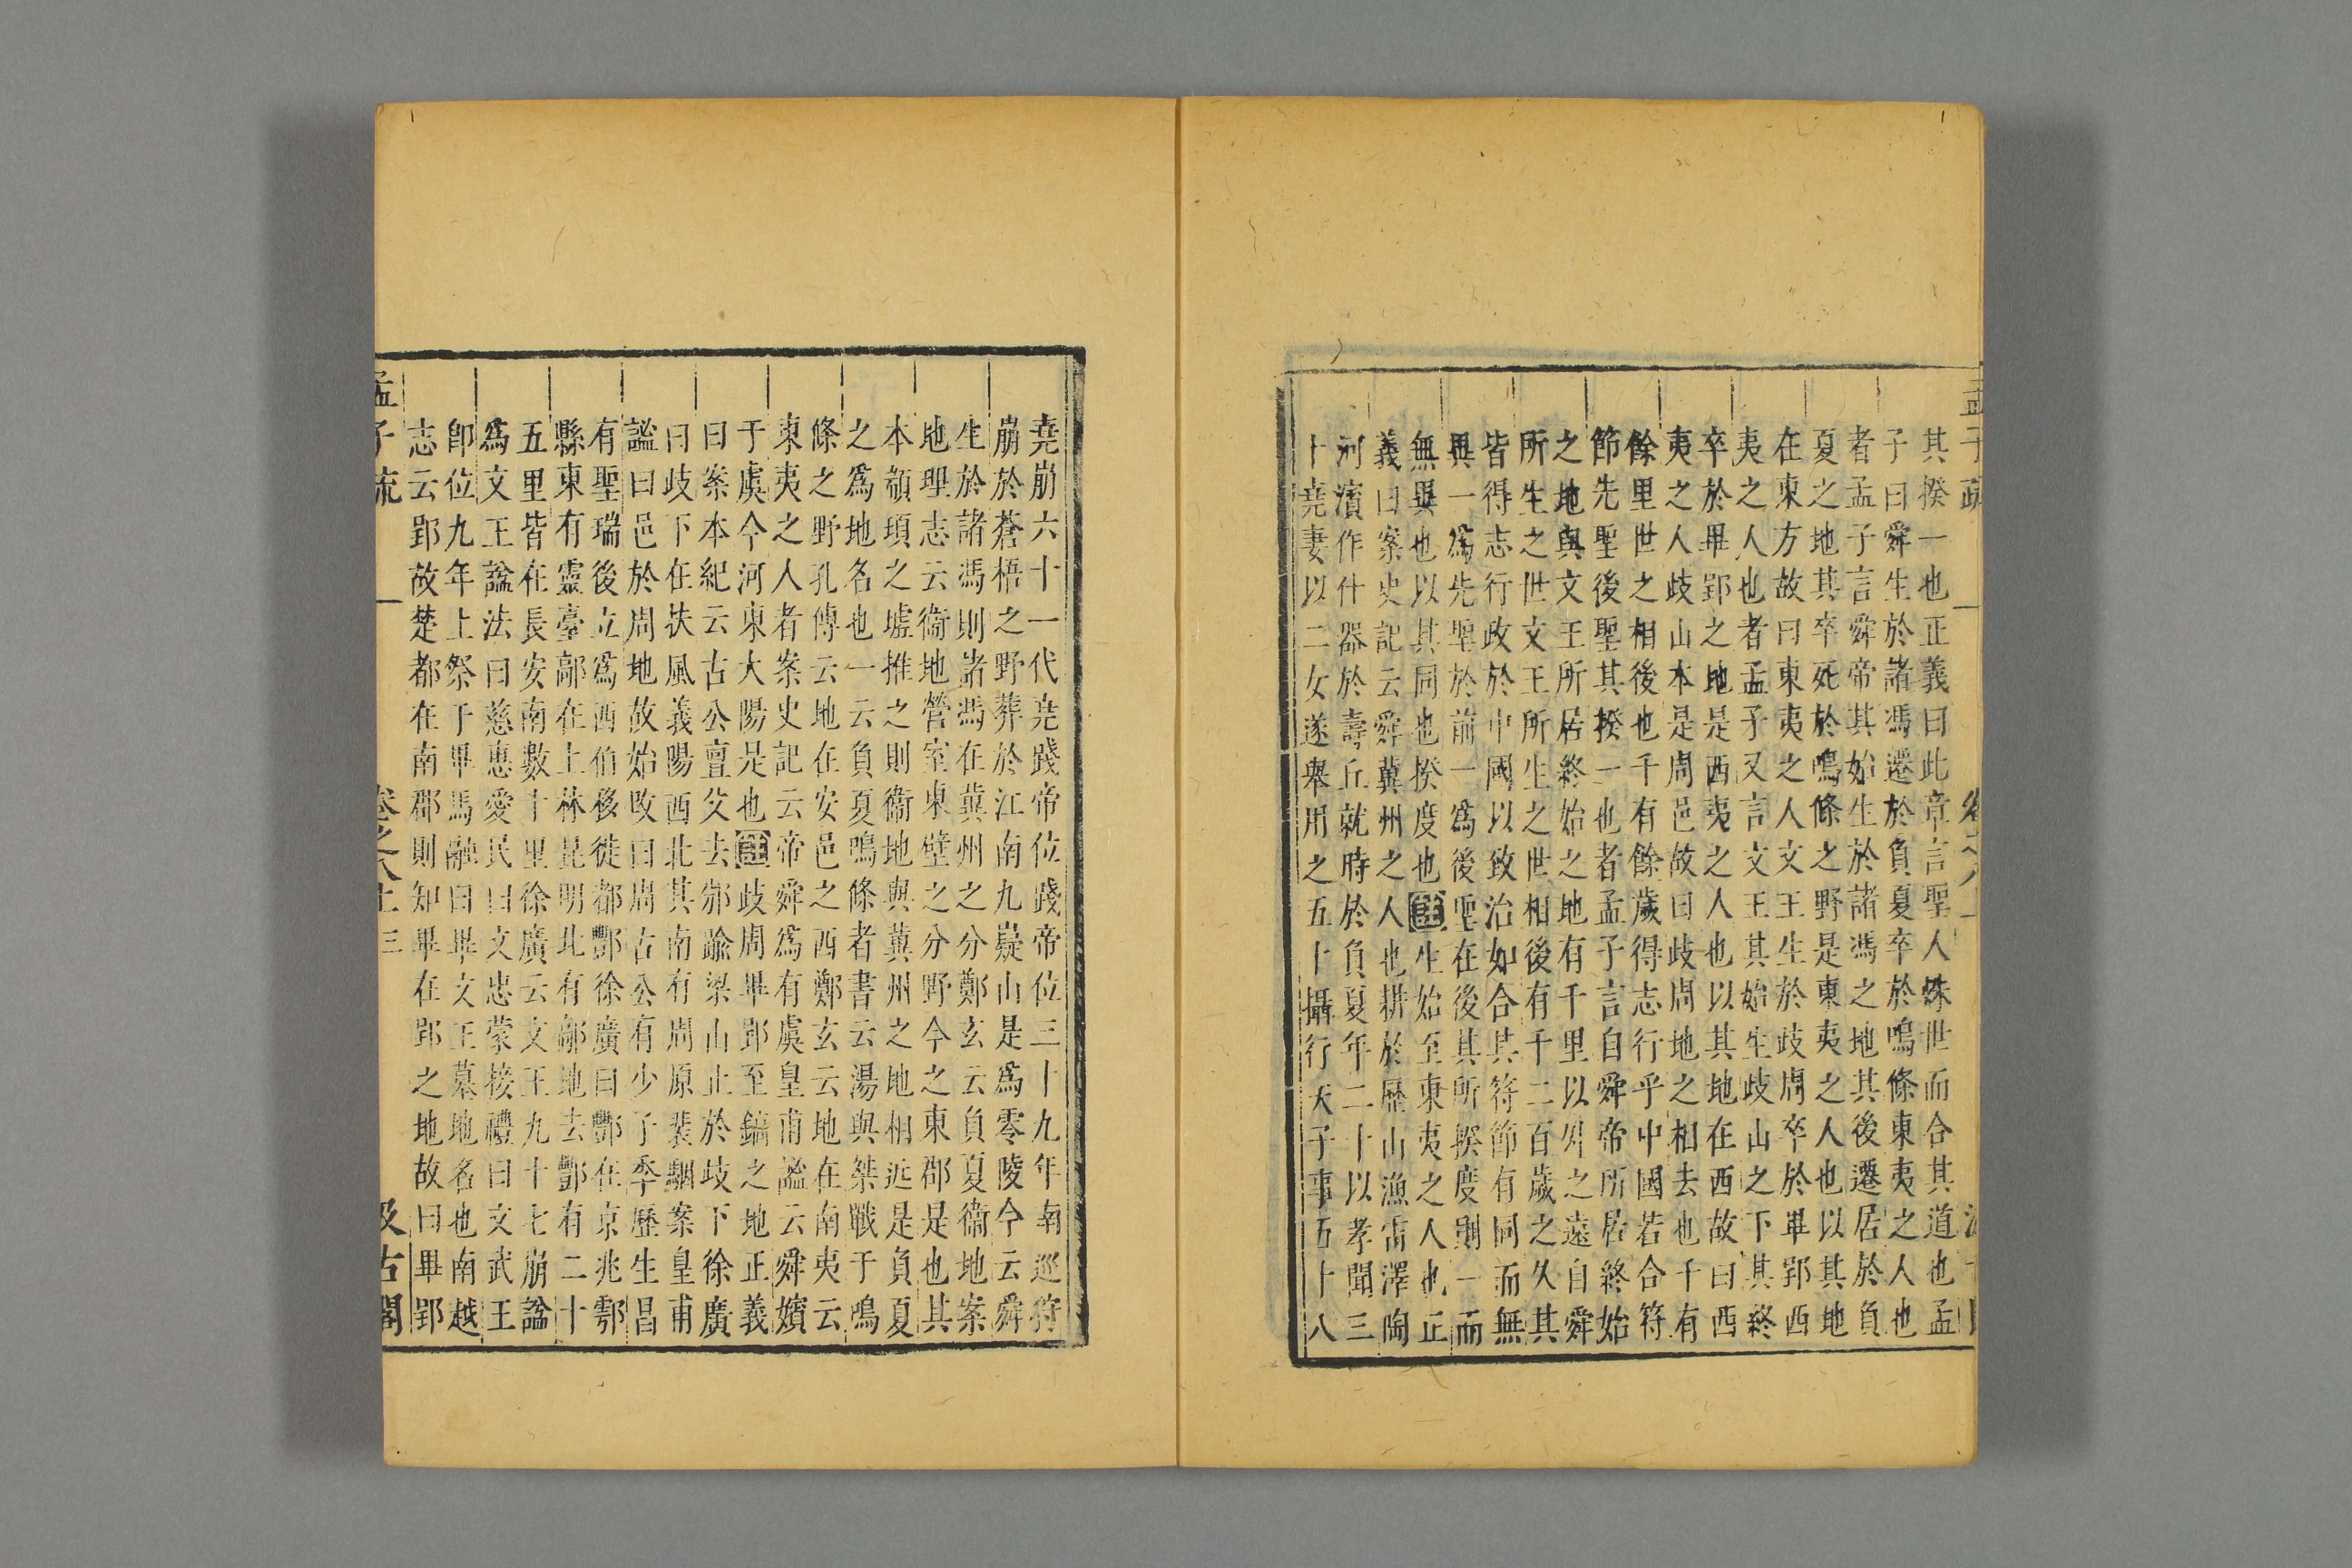 孟子疏
其揆一也正義曰此章言聖人殊世而合其道也孟
子曰舜生於諸馮遷於負夏卒於鳴條東夷之人也
者孟子言舜帝其始生於諸馮之地其後遷居於負
夏之地其卒死於鳴條之野是東夷之人也以其地
在東方故曰東夷之人文王生於歧周卒於畢郢西
夷之人也者孟子又言文王其始生歧山之下其終
卒於畢郢之地是西夷之人也以其地在西故曰西
夷之人歧山本是周邑故曰歧周地之相去也千有
餘里世之相後也千有餘歲得志行乎中國若合符
節先聖後聖其揆一也者孟子言自舜帝所居終始
之地與文王所居終始之地有千里以外之遠自舜
所生之世文王所生之世相後有千二百歲之久其
皆得志行政於中國以致治如合其符節有同而無
異一爲先聖於前一爲後聖在後其所揆度則一而
無異也以其同也揆度也註生始至東夷之人也正
義曰案史記云舜冀州之人也耕於歷山漁雷澤陶
河濱作什器於壽丘就時於負夏年二十以孝聞三
十堯妻以二女遂舉用之五十攝行天子事五十八
堯崩六十一代堯踐帝位踐帝位三十九年南巡狩
崩於蒼梧之野葬於江南九嶷山是爲零陵今云舜
生於諸馮則諸馮在冀州之分鄭玄云負夏衞地案
地理志云衞地營室東壁之分野今之東郡是也其
本顓頊之墟推之則衞地與冀州之地相近是負夏
之爲地名也一云負夏鳴條者書云湯與桀戰于鳴
條之野孔傳云地在安邑之西鄭玄云地在南夷云
東夷之人者案史記云帝舜爲有虞皇甫謐云舜嬪
于虞今河東大陽是也註歧周畢郢至鎬之地正義
曰案本紀云古公亶父去邠踰梁山止於歧下徐廣
曰歧下在扶風義陽西北其南有周原裴駰案皇甫
謐曰邑於周地故始改曰周古公有少子季歷生昌
有聖瑞後立爲西伯移徙都酆徐廣曰酆在京兆鄠
縣東有靈臺鄗在上林昆明北有鄗地去酆有二十
五里皆在長安南數十里徐廣云文王九十七崩諡
爲文王諡法曰慈惠愛民曰文忠蒙接禮曰文武王
卽位九年上祭于畢馬融曰畢文王墓地名也南越
志云郢故楚都在南郡則知畢在郢之地故曰畢郢
孟子疏
卷之八上
三
汲古閣